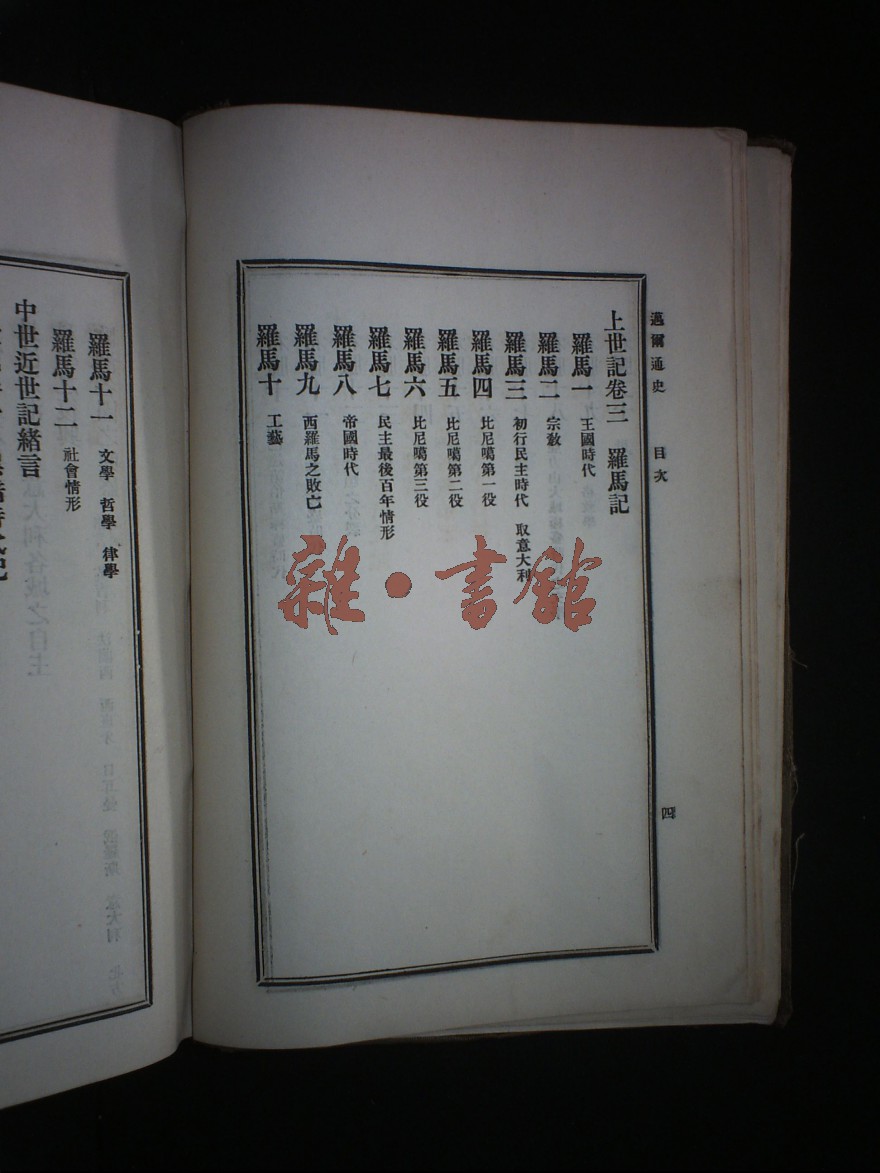 邁爾通史 目次 四
上世記卷三 羅馬記
羅馬一 王國時代
羅馬二 宗教
羅馬三 初行民主時代 取意大利
羅馬四 比尼噶第一役
羅馬五 比尼噶第二役
羅馬六 比尼噶第三役
羅馬七 民主最後百年情形
羅馬八 帝國時代
羅馬九 西羅馬之敗亡
羅馬十 工藝
羅馬十一 文學 哲學 律學
羅馬十二 社會情形
中世近世記緒言
雜·書館